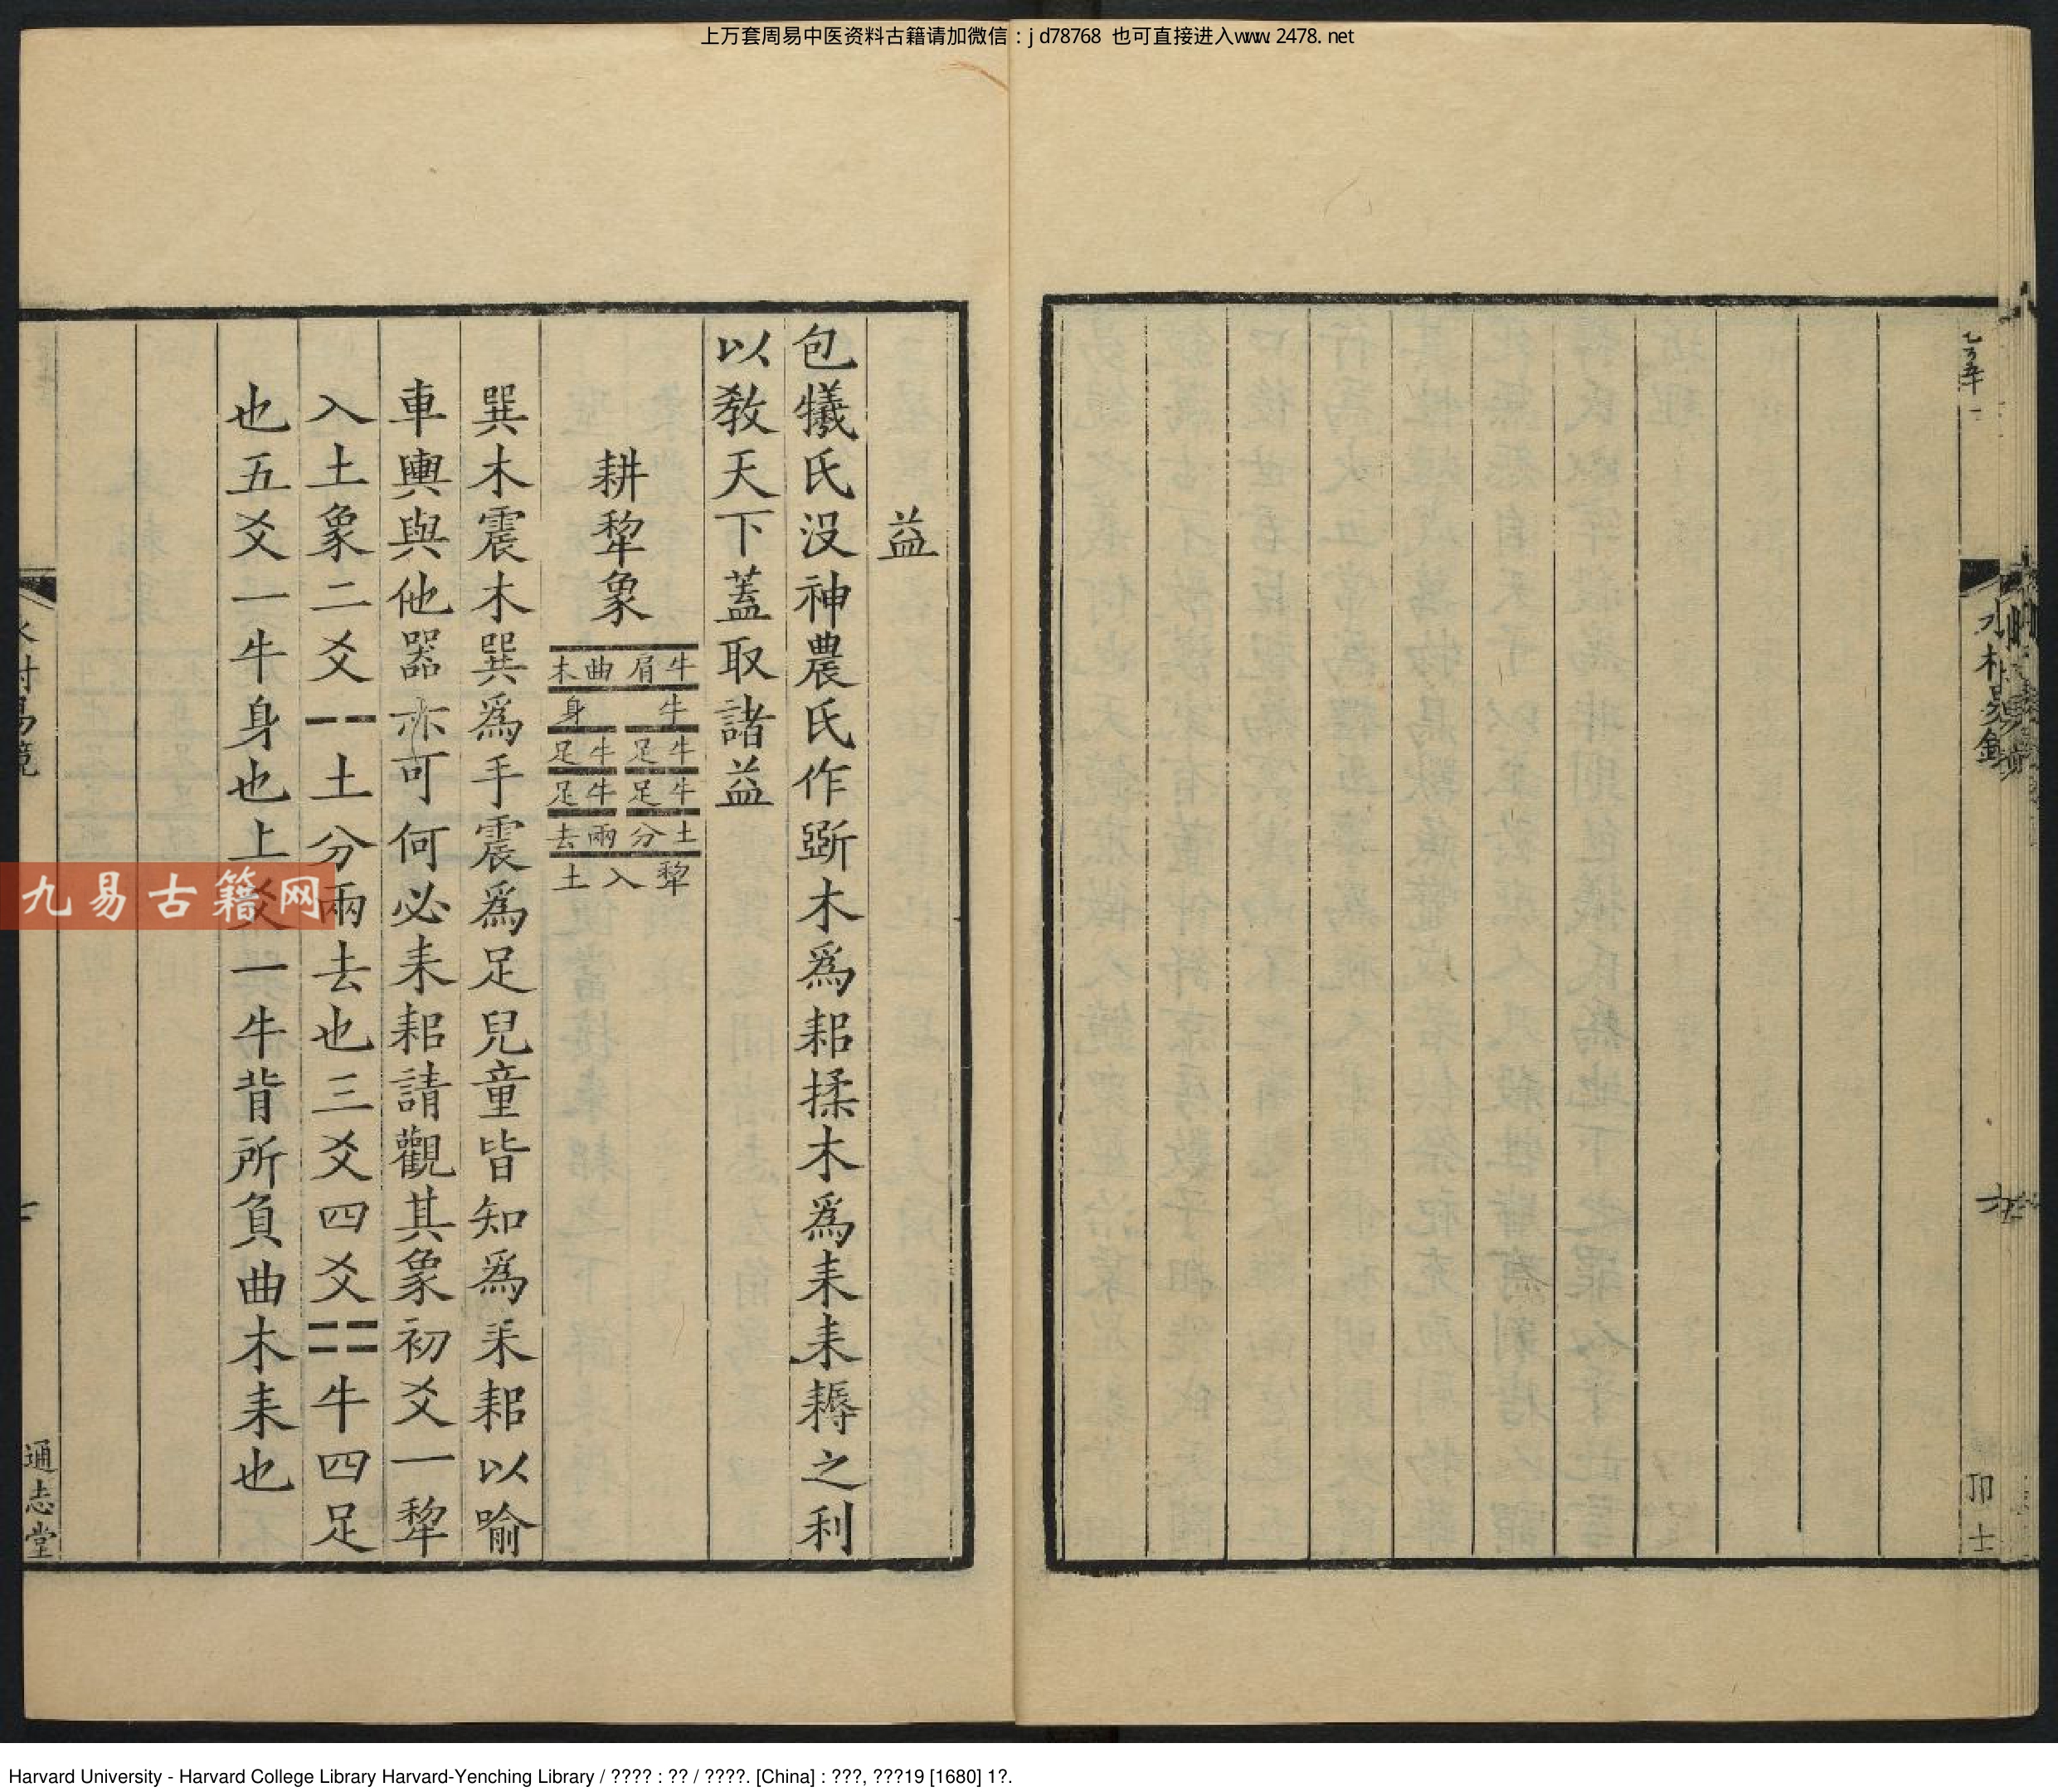 上万套周易中医资料古籍请加微信：jd78768 也可直接进入www.2478.net
卬士
益
包犧氏没神農氏作斲木為耜揉木為耒耒耨之利
以教天下蓋取諸益
耕犂象
牛肩曲木
牛身
牛足牛足
牛足牛足
土分兩去
犂入土
巽木震木巽為手震為足兒童皆知為耒耜以喻
車輿與他器亦可何必耒耜請觀其象初爻一犂
入土象二爻⚋土分兩去也三爻四爻⚏牛四足
也五爻一牛身也上爻一牛背所負曲木耒也
通志堂
九易古籍网
Harvard University - Harvard College Library Harvard-Yenching Library / ???? : ?? / ????. [China] : ???, ???19 [1680] 1?.